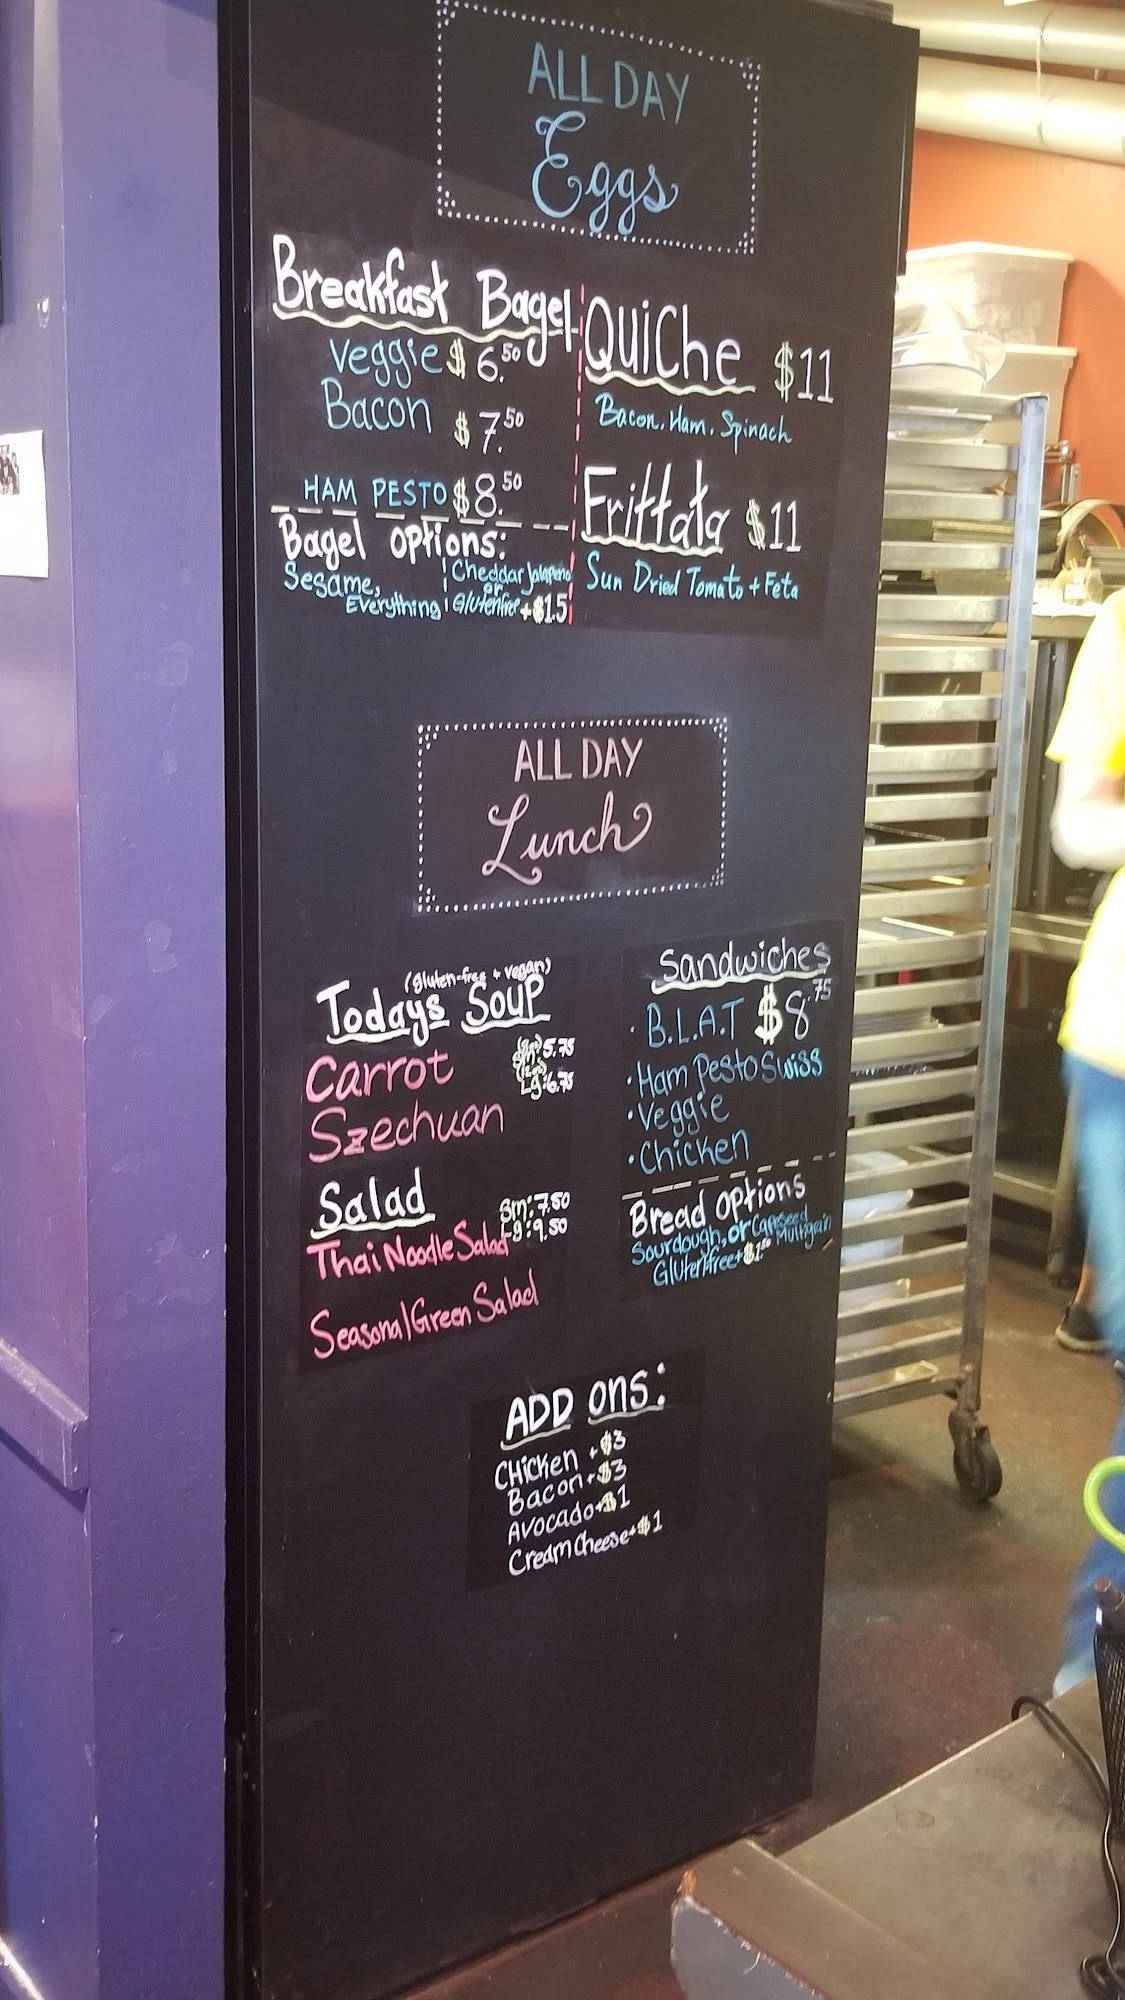 ALL DAY
Eggs
Breakfast Bagel
Veggie $6.50
Bacon $7.50
HAM PESTO $8.50
Bagel options:
Sesame,
Everything
Cheddar Jalapeno
or
Glutenfree +$1.5
QUiChe $11
Bacon, Ham, Spinach
Frittata $11
Sun Dried Tomato + Feta
ALL DAY
Lunch
(gluten-free + vegan)
Todays Soup
Carrot
Szechuan
Sm: 5.75
Lg: 6.75
Salad
Sm: 7.50
Lg: 9.50
Thai Noodle Salad
Seasonal Green Salad
Sandwiches
· B.L.A.T $8.75
· Ham Pesto Swiss
· Veggie
· Chicken
Bread options
Sourdough, or Capeseed
Multigrain
Glutenfree +$1.50
ADD ons:
CHicken +$3
Bacon +$3
Avocado +$1
Cream Cheese +$1